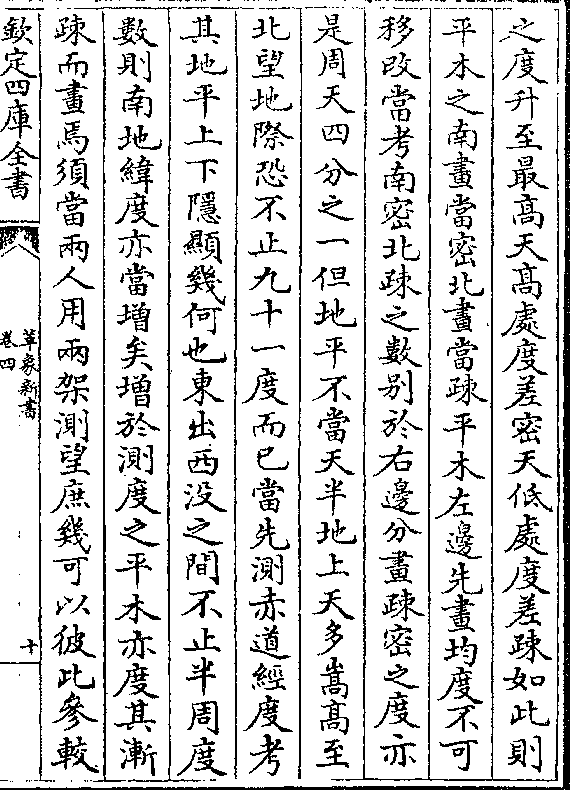 之度升至最高天髙處度差密天低處度差疎如此則
平木之南畫當密北畫當疎平木左邊先畫均度不可
移改當考南密北疎之數别於右邊分畫疎密之度亦
是周天四分之一但地平不當天半地上天多嵩髙至
北望地際恐不止九十一度而已當先測赤道經度考
其地平上下隱顯幾何也東出西没之間不止半周度
數則南地緯度亦當增矣增於測度之平木亦度其漸
疎而畫焉須當兩人用兩架測望庶幾可以彼此參較
欽定四庫全書
革象新書
卷四
十